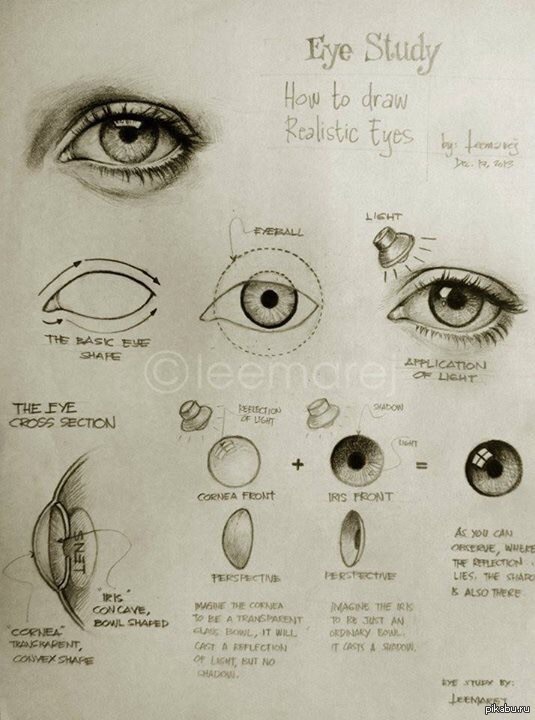 Eye Study
How to draw
Realistic Eyes
by: leemarej
Dec. 17, 2013
EYEBALL
LIGHT
THE BASIC EYE
SHAPE
APPLICATION
OF LIGHT
©leemarej
THE EYE
CROSS SECTION
REFLECTION
OF LIGHT
SHADOW
LIGHT
+
=
CORNEA FRONT
IRIS FRONT
PERSPECTIVE
PERSPECTIVE
LENS
"IRIS"
CONCAVE,
BOWL SHAPED
"CORNEA"
TRANSPARENT,
CONVEX SHAPE
IMAGINE THE CORNEA
TO BE A TRANSPARENT
GLASS BOWL, IT WILL
CAST A REFLECTION
OF LIGHT, BUT NO
SHADOW.
IMAGINE THE IRIS
TO BE JUST AN
ORDINARY BOWL.
IT CASTS A SHADOW.
AS YOU CAN
OBSERVE, WHERE
THE REFLECTION
LIES. THE SHADO
IS ALSO THERE
EYE STUDY BY:
LEEMAREJ
pikabu.ru